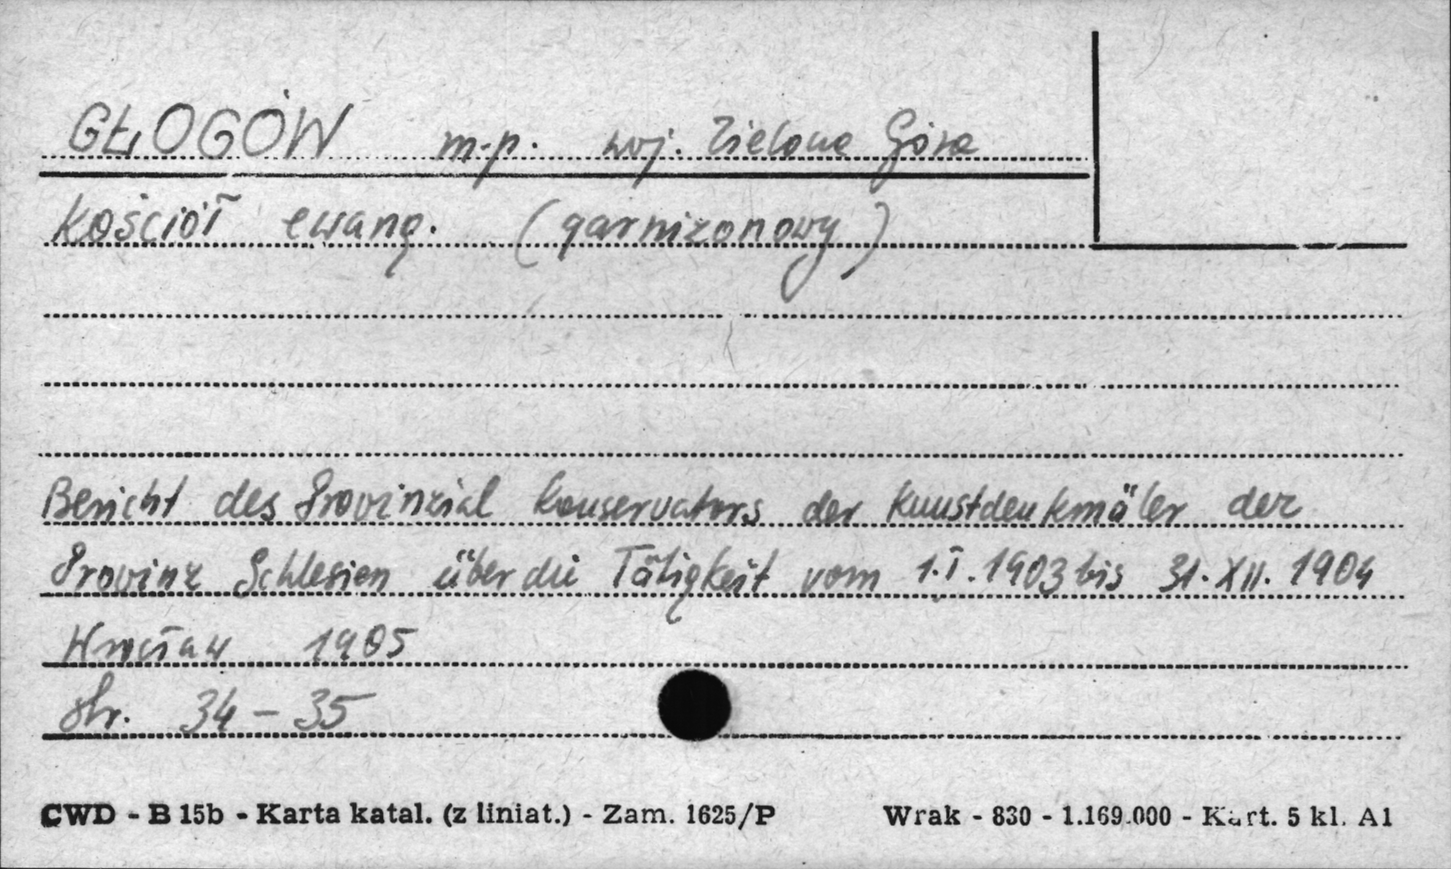 GŁOGÓW m.p. woj. Zielona Góra
Kościół ewang. (garnizonowy)
Bericht des Provinzial Konservators der Kunstdenkmäler der
Provinz Schlesien über die Tätigkeit vom 1.I.1903 bis 31.XII.1904
Wrocław 1905
Str. 34-35
CWD - B 15b - Karta katal. (z liniat.) - Zam. 1625/P Wrak - 830 - 1.169.000 - Kart. 5 kl. A1